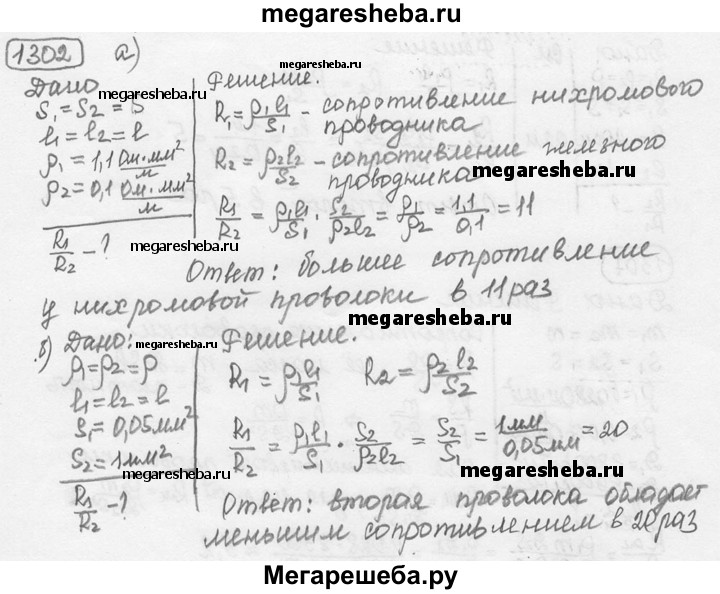 megaresheba.ru
1302 а)
megaresheba.ru
Дано
S₁ = S₂ = S
l₁ = l₂ = l
ρ₁ = 1,1 Ом·мм²/м
ρ₂ = 0,1 Ом·мм²/м
R₁/R₂ - ?
Решение.
R₁ = ρ₁l₁/S₁ - сопротивление нихромового
проводника
megaresheba.ru
R₂ = ρ₂l₂/S₂ - сопротивление железного
проводника
megaresheba.ru
R₁/R₂ = ρ₁l₁/S₁ · S₂/ρ₂l₂ = ρ₁/ρ₂ = 1,1/0,1 = 11
megaresheba.ru
Ответ: большее сопротивление
у нихромовой проволоки в 11 раз
megaresheba.ru
б) Дано:
megaresheba.ru
ρ₁ = ρ₂ = ρ
l₁ = l₂ = l
S₁ = 0,05 мм²
S₂ = 1 мм²
R₁/R₂ - ?
Решение.
R₁ = ρ₁l₁/S₁ R₂ = ρ₂l₂/S₂
R₁/R₂ = ρ₁l₁/S₁ · S₂/ρ₂l₂ = S₂/S₁ = 1мм/0,05мм = 20
megaresheba.ru
Ответ: вторая проволока обладает
меньшим сопротивлением в 20 раз
megaresheba.ru
Мегарешеба.ру